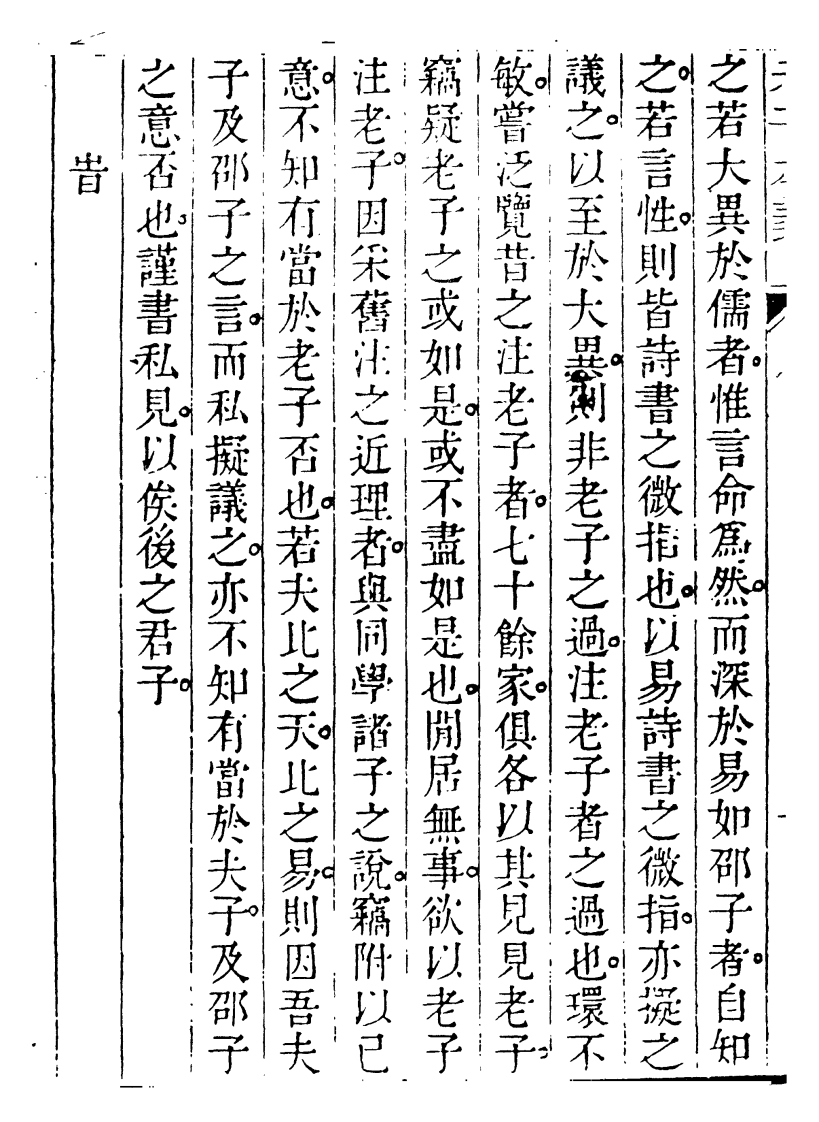 之若大異於儒者。惟言命爲然。而深於易如邵子者。自知
之。若言性。則皆詩書之微指也。以易詩書之微指。亦擬之
議之。以至於大異。則非老子之過。注老子者之過也。環不
敏。嘗泛覽昔之注老子者。七十餘家。俱各以其見見老子。
竊疑老子之或如是。或不盡如是也。閒居無事。欲以老子
注老子。因采舊注之近理者。與同學諸子之說。竊附以己
意。不知有當於老子否也。若夫北之天。北之易。則因吾夫
子及邵子之言。而私擬議之。亦不知有當於夫子。及邵子
之意否也。謹書私見。以俟後之君子。
旹